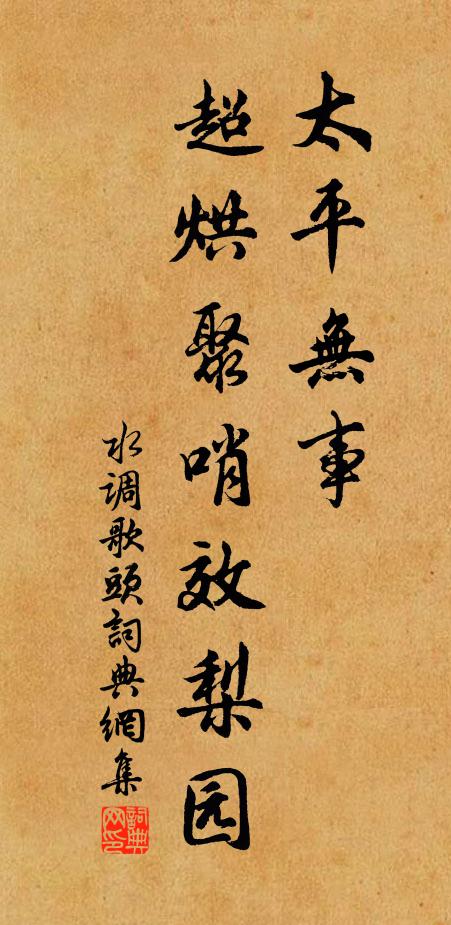 太平無事
超烘聚哨效梨园
水调歌頭詞典網集
詞典網印